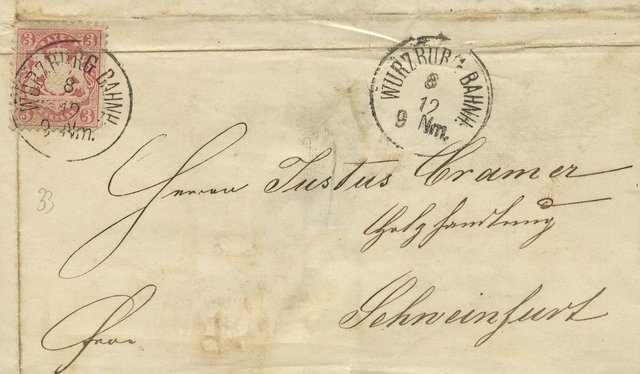 3 BAYERN 3
3 3
WÜRZBURG BAHNH.
8
12
9 Nm.
WÜRZBURG BAHNH.
8
12
9 Nm.
33
Herrn Justus Cramer
Holzhandlung
Schweinfurt